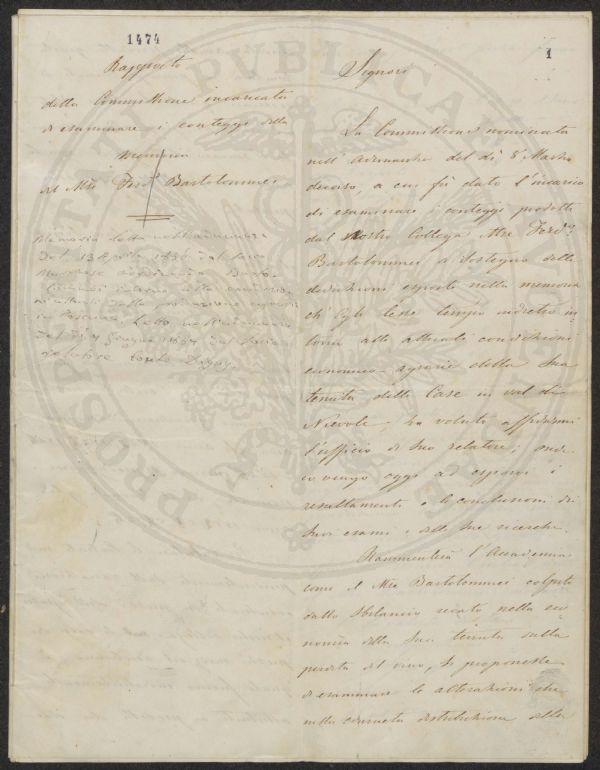 1474
Rapporto
della Commissione incaricata
di esaminare i conteggi della
memoria
del Mse Ferd. Bartolommei
Memoria letta nell'adunanza
del 13 Aprile 1856 dal socio
Marchese Ferdinando Barto-
lommei intorno alle condizio-
ni attuali della produzione agraria
in Toscana. Letto nell'adunanza
del dì 7 giugno 1857 dal socio
relatore Conte Digny
1
Signori
La Commissione nominata
nell'Adunanza del dì 8 Marzo
decorso, a cui fù dato l'incarico
di esaminare i conteggi prodotti
dal Nostro Collega Mse Ferdo
Bartolommei a sostegno delle
deduzioni esposte nella memoria
ch'Egli lesse tempo indietro in-
torno alle attuali condizioni
economico-agrarie della Sua
tenuta delle Case in val di
Nievole, ha voluto affidarmi
l'ufficio di Suo relatore; ond'
io vengo oggi ad esporvi i
resultamenti e le conclusioni dei
Suoi esami e delle Sue ricerche.
Rammenterà l'Accademia
come il Mse Bartolommei colpito
dallo sbilancio recato nella eco-
nomia della Sua tenuta dalla
perdita del vino, si proponesse
di esaminare le alterazioni che
nella consueta distribuzione delle
PROSPERITATI PUBLICAE